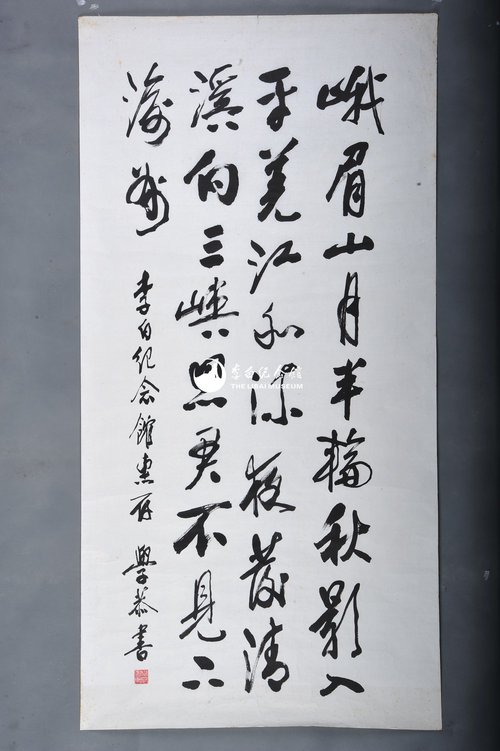 峨眉山月半輪秋影入
平羌江水流夜發清
溪向三峽思君不見下
渝州
李白纪念館惠存 學恭書
李白纪念馆
THE LIBAI MUSEUM